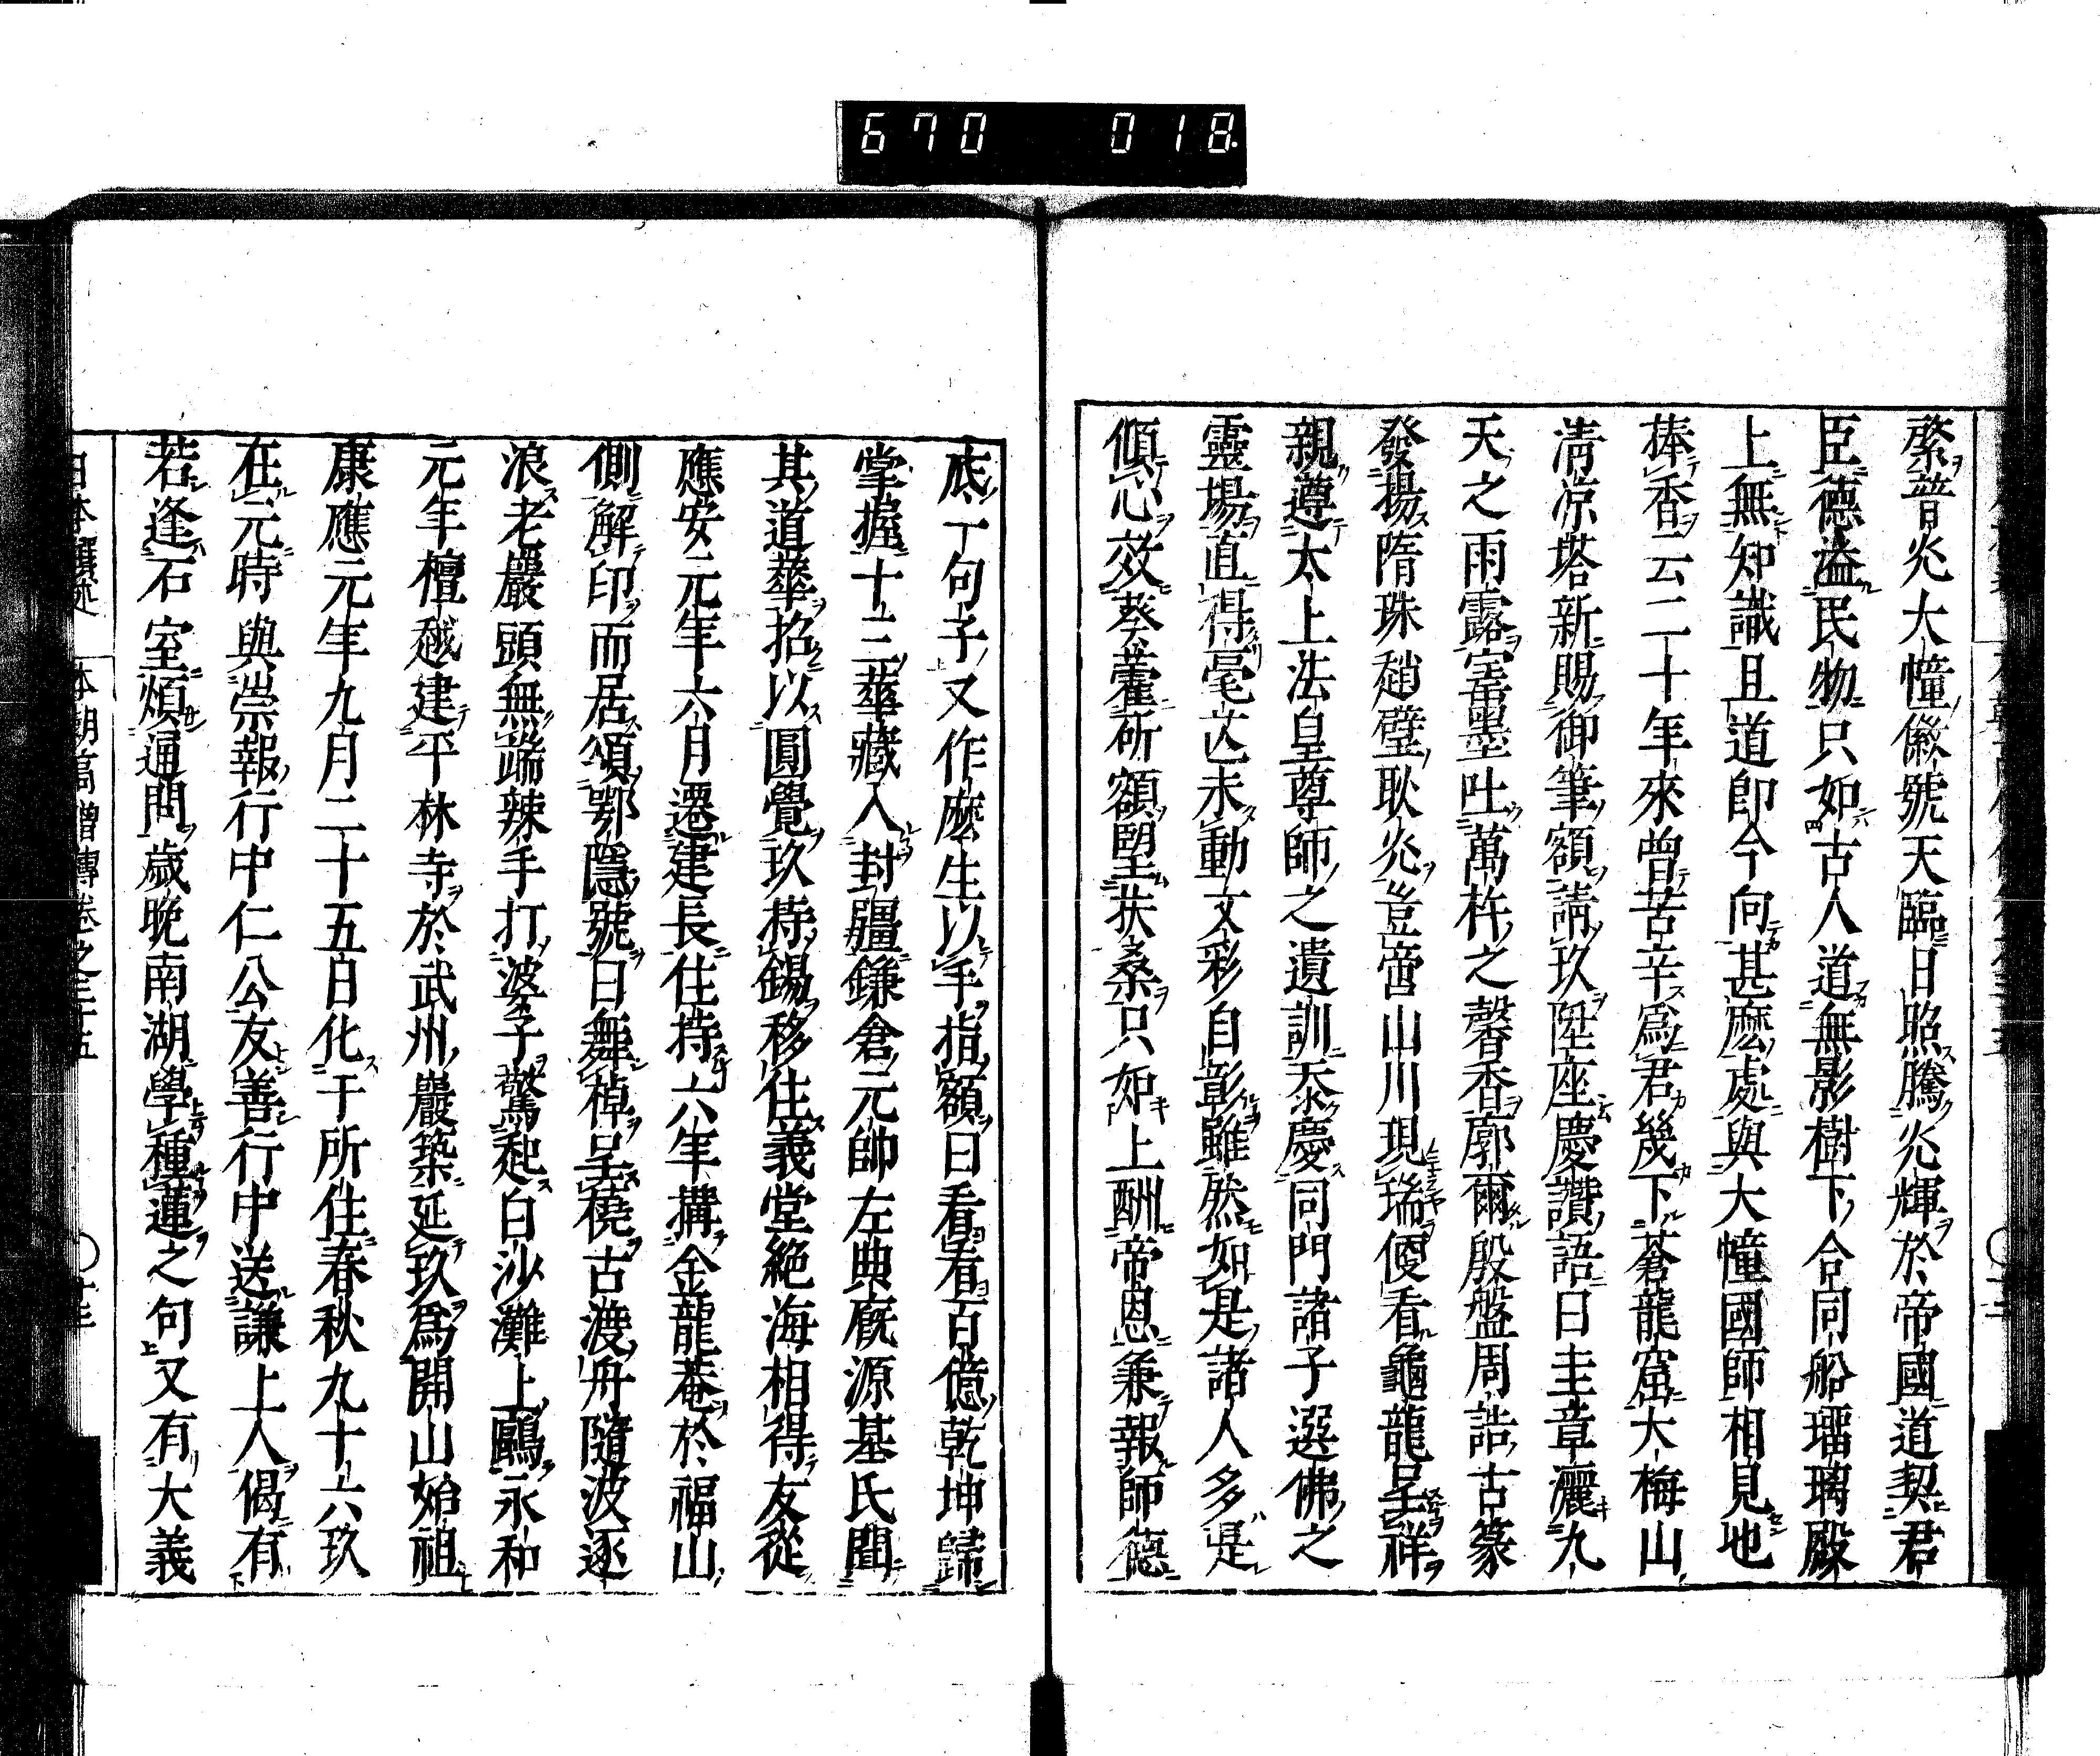 670 018
綮普光大幢徽號天臨日照騰光輝於帝國道契君
臣德溢民物只如古人道無影樹下合同船瑠璃殿
上無知識且道即今向甚麼處與大幢國師相見地
捧香云二十年來曾苦辛爲君幾下蒼龍窟大梅山
淸凉塔新賜御筆額請玖陞座慶讚語曰圭章灑九
天之雨露寶墨吐萬杵之馨香廓爾殷盤周誥古篆
發揚隋珠趙璧耿光豈啻山川現瑞便看龜龍呈祥
親遵太上法皇尊師之遺訓忝慶同門諸子選佛之
靈場直得毫芒未動文彩自彰雖然如是諸人多是
傾心效葵藿所額望扶桑只如上酬帝恩兼報師德
底一句子又作麽生以手指額曰看看百億乾坤歸
掌握十二華藏入封疆鎌倉元帥左典廐源基氏聞
其道譽招以圓覺玖持錫移住義堂絶海相得友從
應安元年六月遷建長住持六年搆金龍菴於福山
側解印而居頌鄂隱號曰舞棹呈橈古渡舟隨波逐
浪老巖頭無端辣手打婆子驚起白沙灘上鷗永和
元年檀越建平林寺於武州巖築延玖爲開山始祖
康應元年九月二十五日化于所住春秋九十六玖
在元時與崇報行中仁公友善行中送謙上人偈有
若逢石室煩通問歲晩南湖學種蓮之句又有大義
本朝高僧傳卷之三十五